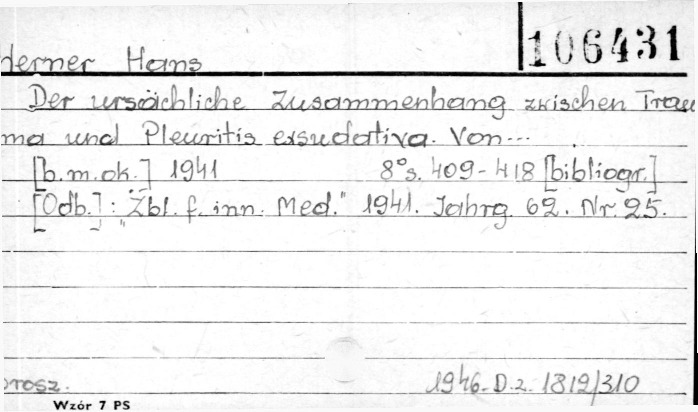 106431
derner Hans
Der ursächliche Zusammenhang zwischen Trau
ma und Pleuritis exsudativa. Von...
[b.m.ok.] 1941 8° s. 409-418 [bibliogr.]
[Odb.]: "Zbl. f. inn. Med." 1941. Jahrg. 62. Nr. 25.
brosz. 1946.D.z.1812/310
Wzór 7 PS